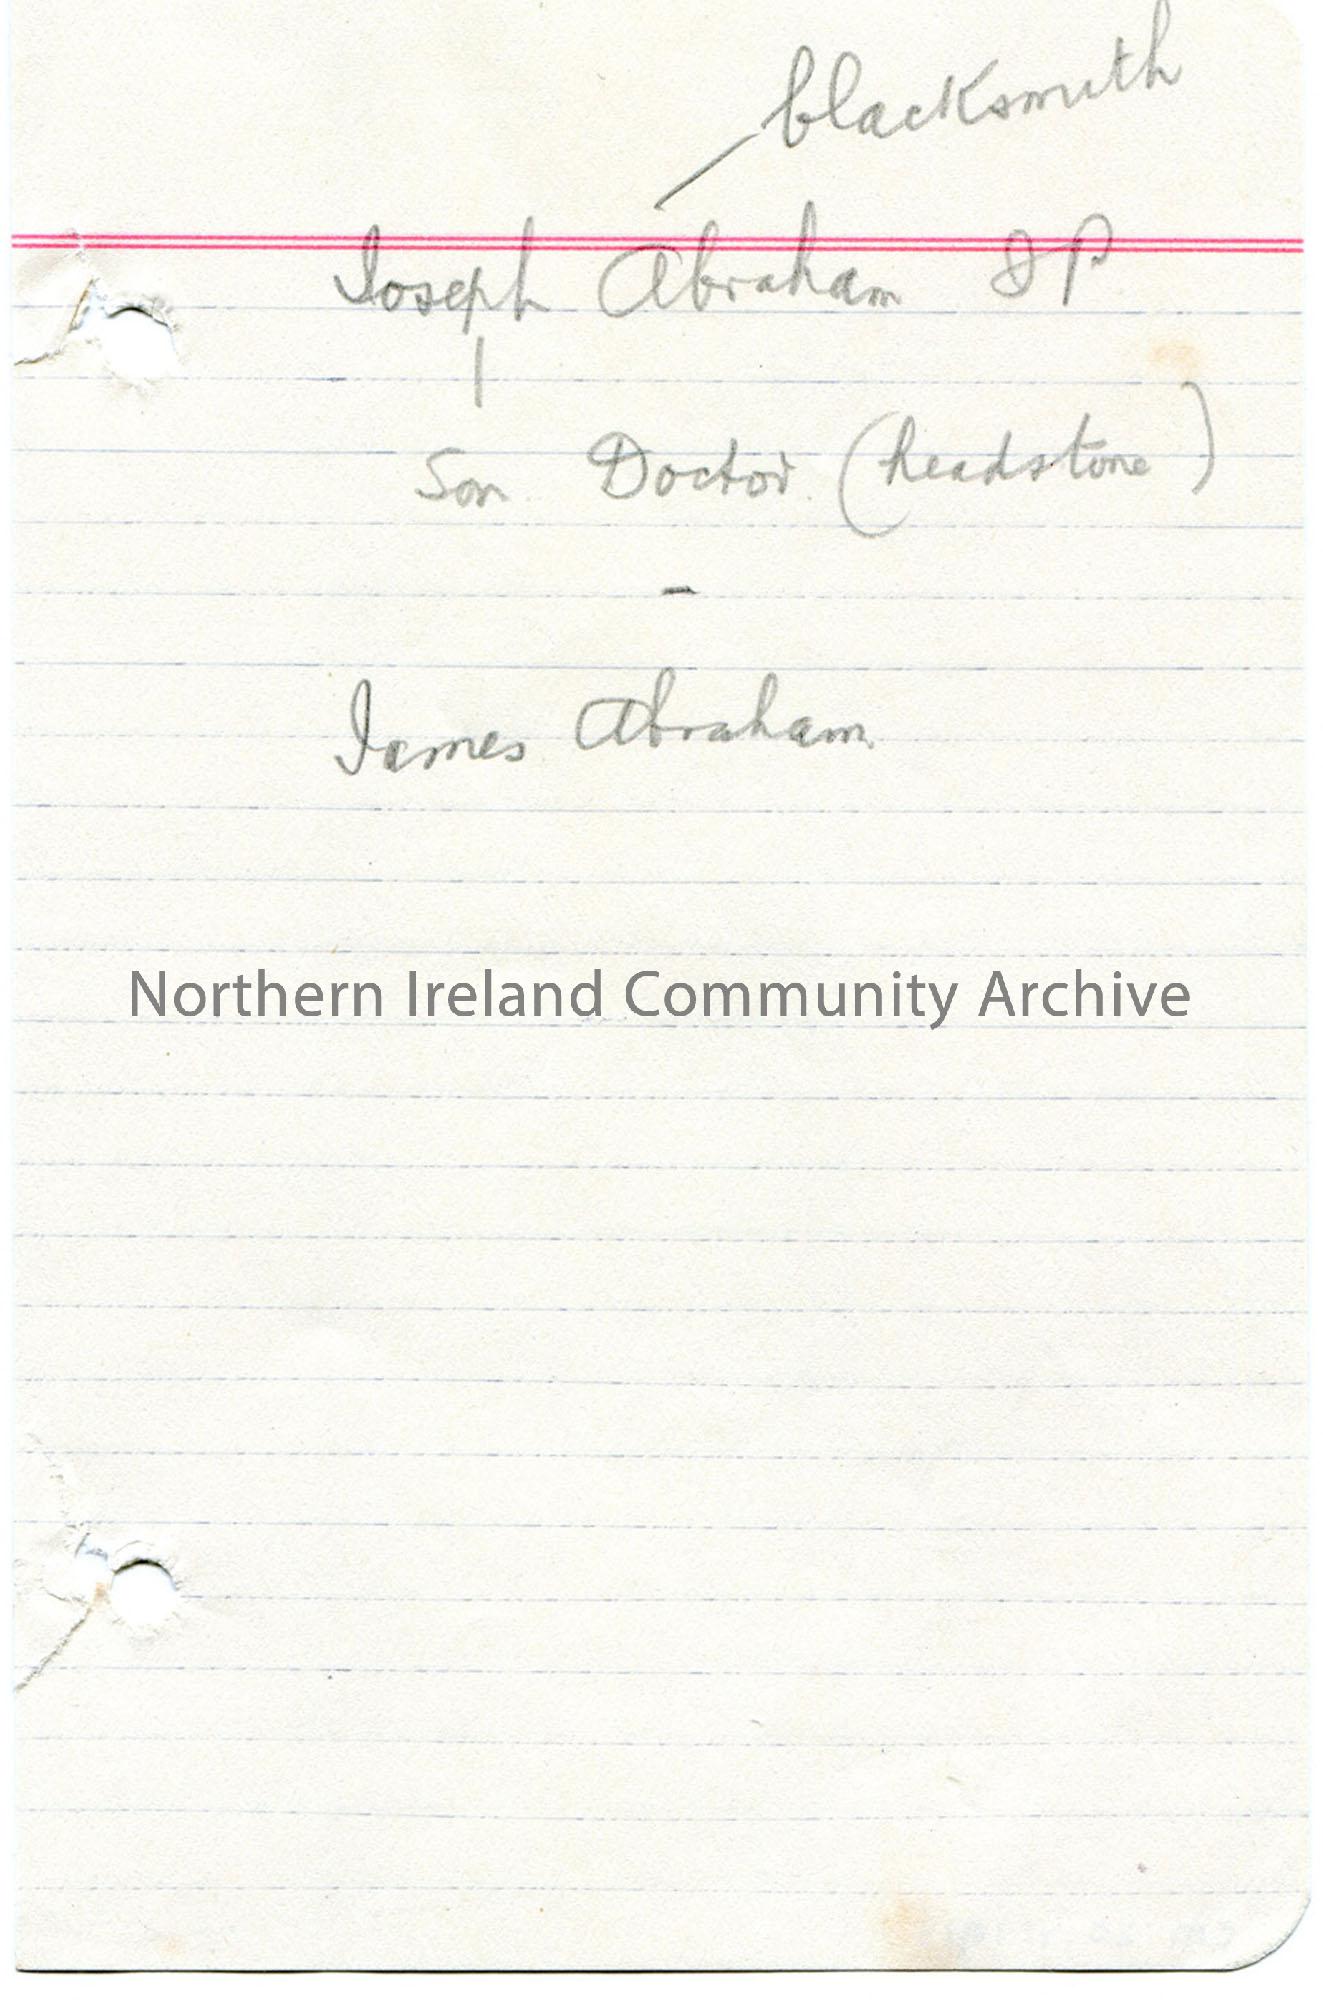 blacksmith
Joseph Abraham JP
Son Doctor (headstone)
-
James Abraham
Northern Ireland Community Archive